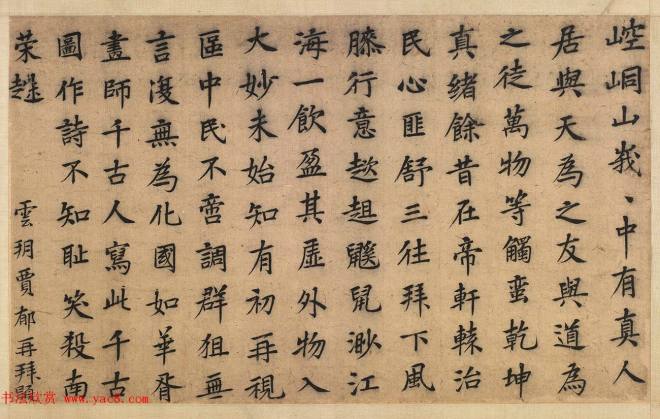 崆峒山峩〻中有真人
居與天為之友與道為
之徒萬物等觸蛮乾坤
真緒餘昔在帝軒轅治
民心匪舒三往拜下風
膝行意趑趄鼷鼠渺江
海一飲盈其虛外物入
大妙未始知有初再視
區中民不啻調群狙無
言復無為化國如華胥
畫師千古人寫此千古
圖作詩不知恥笑殺南
榮趎
雲玥賈郁再拜題
书法欣赏 www.yac8.com